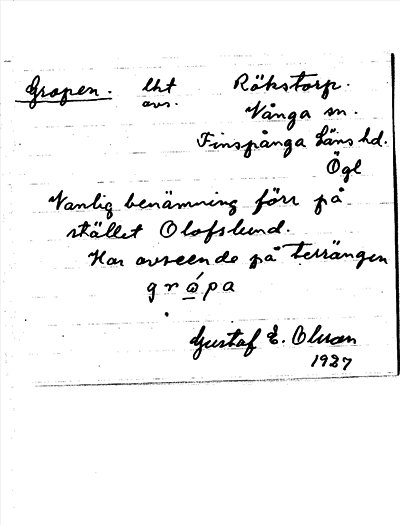 Gropen. lht Rökstorp.
avs. Vånga sn.
Finspånga läns hd.
Ögl
Vanlig benämning förr på
stället Olofslund.
Har avseende på terrängen
Gustaf E. Olsson
1927